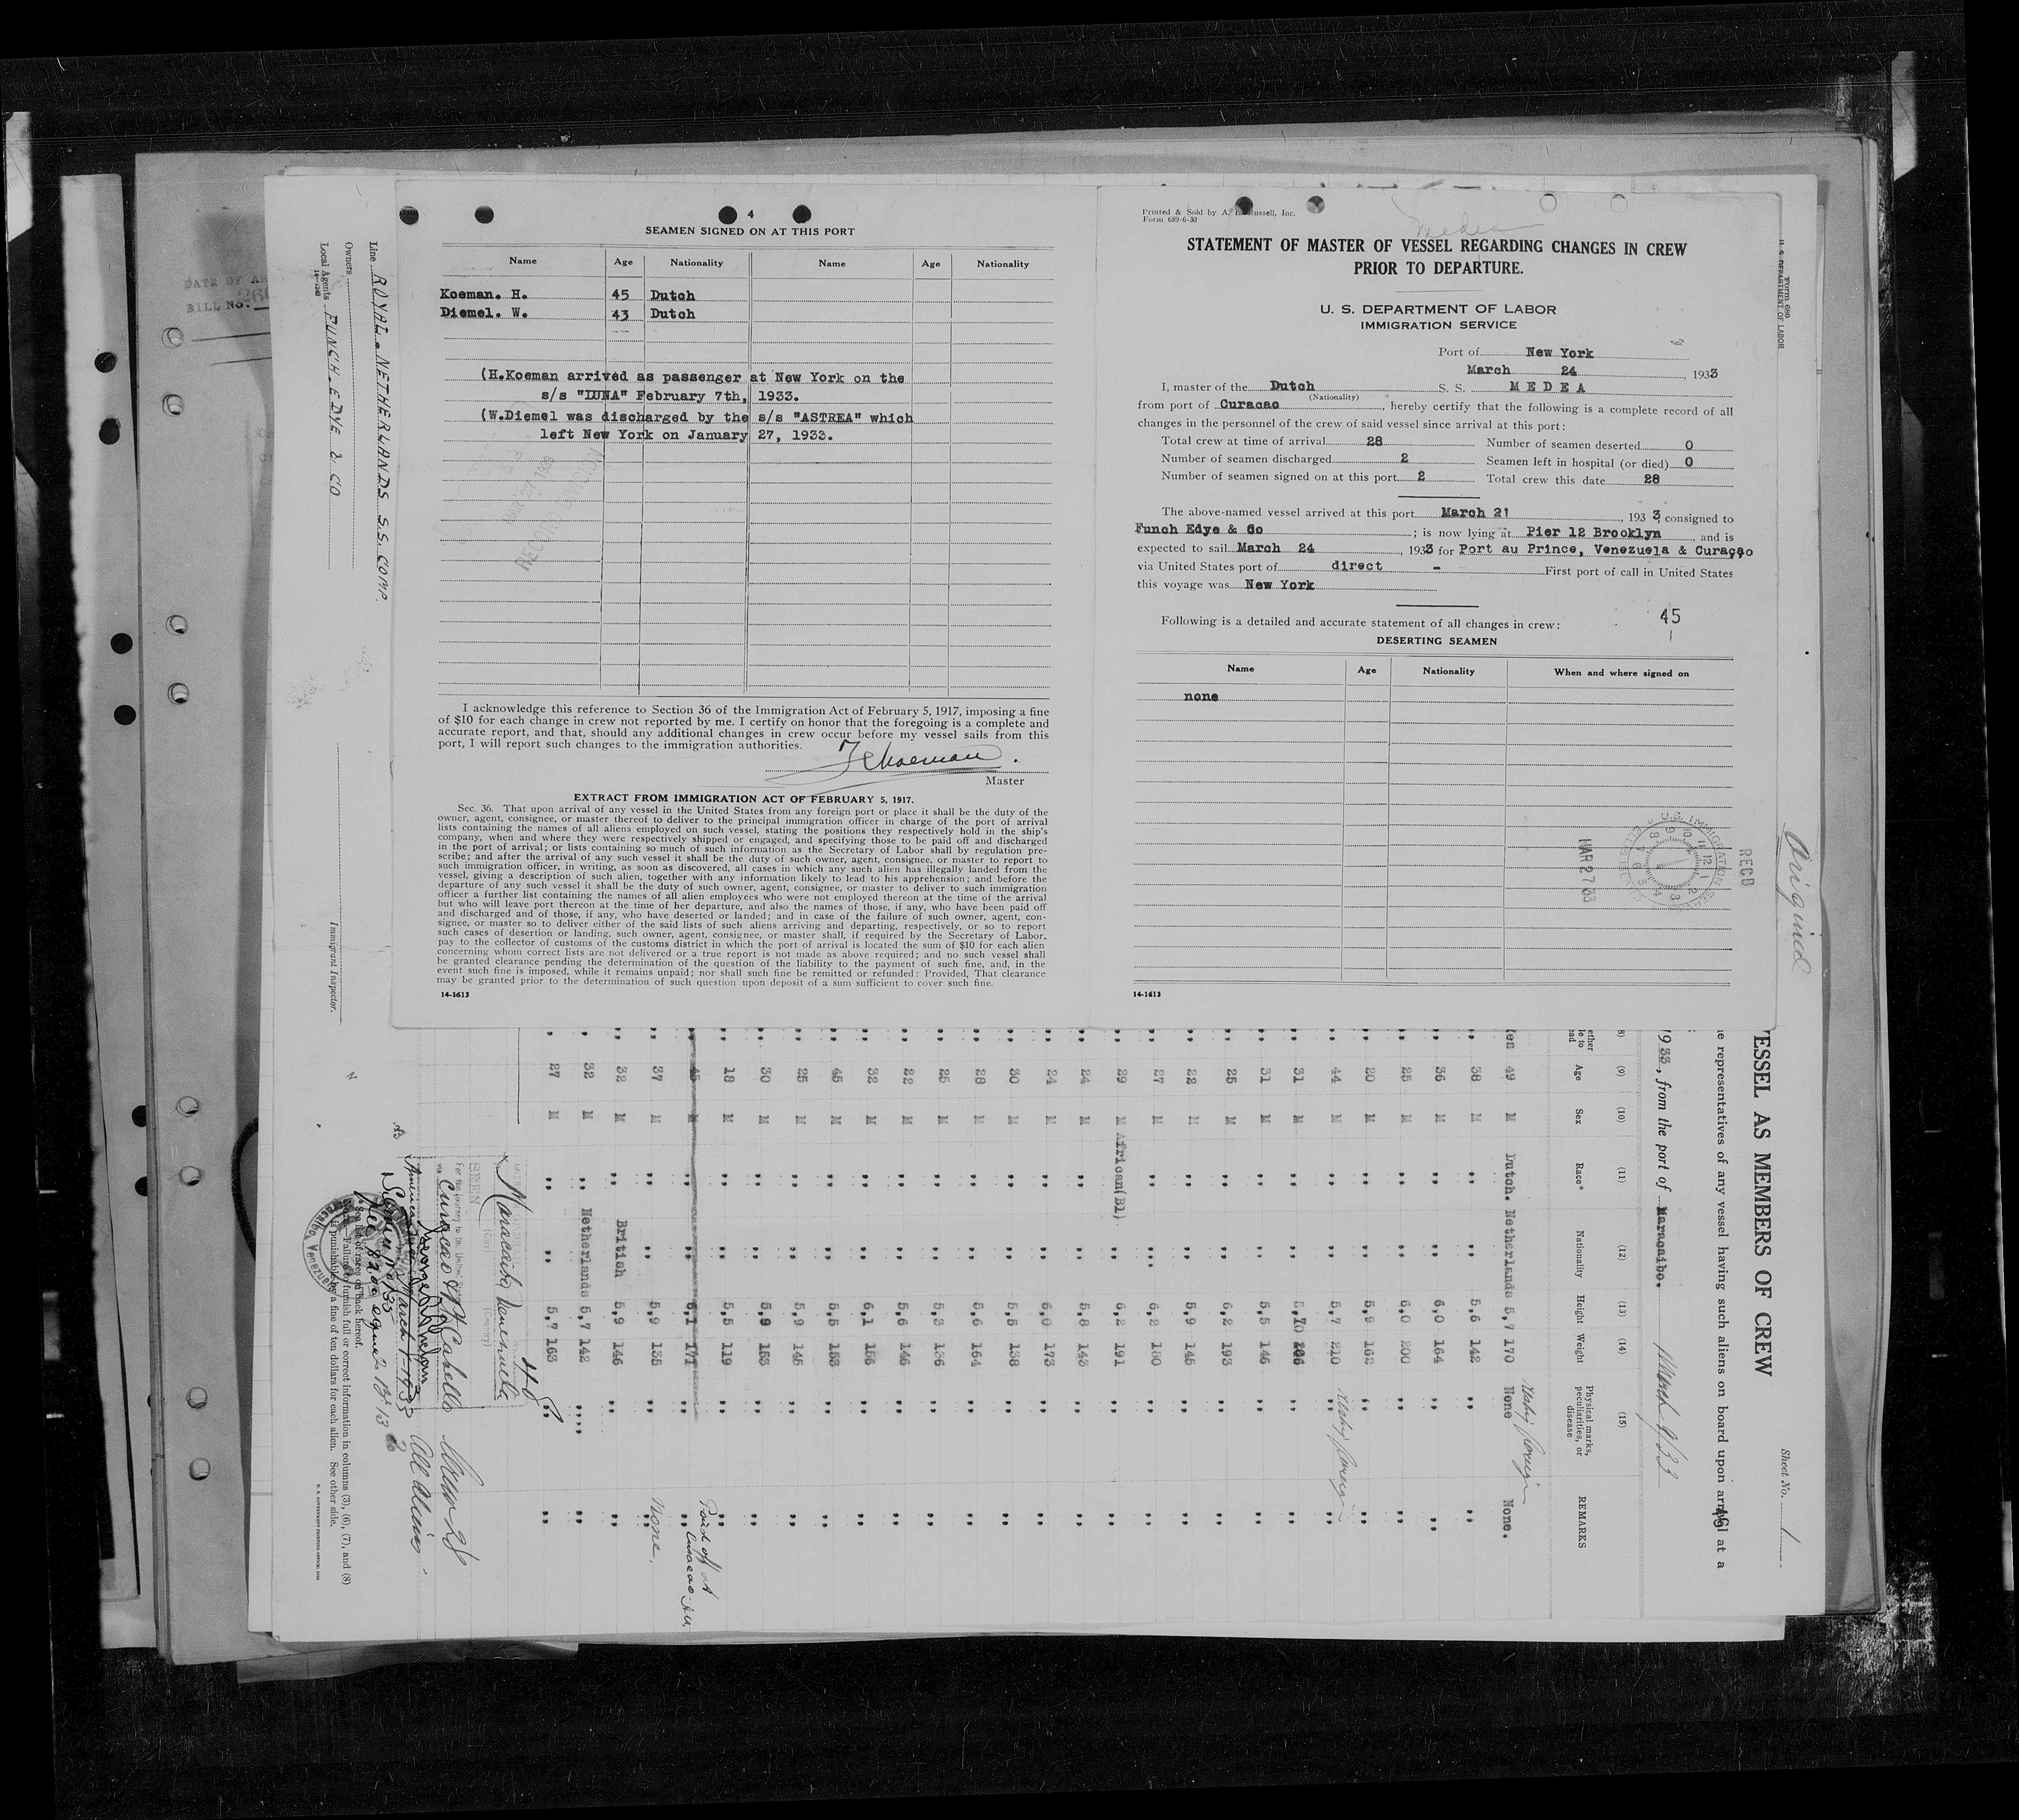 4
SEAMEN SIGNED ON AT THIS PORT
Name Age Nationality Name Age Nationality
Koeman. H. 45 Dutch
Diemel. W. 43 Dutch
(H.Koeman arrived as passenger at New York on the
s/s "LUNA" February 7th, 1933.
(W.Diemel was discharged by the s/s "ASTREA" which
left New York on January 27, 1933.
RECORD DIVISION
I acknowledge this reference to Section 36 of the Immigration Act of February 5, 1917, imposing a fine
of $10 for each change in crew not reported by me. I certify on honor that the foregoing is a complete and
accurate report, and that, should any additional changes in crew occur before my vessel sails from this
port, I will report such changes to the immigration authorities.
Master
EXTRACT FROM IMMIGRATION ACT OF FEBRUARY 5, 1917.
Sec. 36. That upon arrival of any vessel in the United States from any foreign port or place it shall be the duty of the
owner, agent, consignee, or master thereof to deliver to the principal immigration officer in charge of the port of arrival
lists containing the names of all aliens employed on such vessel, stating the positions they respectively hold in the ship's
company, when and where they were respectively shipped or engaged, and specifying those to be paid off and discharged
in the port of arrival; or lists containing so much of such information as the Secretary of Labor shall by regulation pre-
scribe; and after the arrival of any such vessel it shall be the duty of such owner, agent, consignee, or master to report to
such immigration officer, in writing, as soon as discovered, all cases in which any such alien has illegally landed from the
vessel, giving a description of such alien, together with any information likely to lead to his apprehension; and before the
departure of any such vessel it shall be the duty of such owner, agent, consignee, or master to deliver to such immigration
officer a further list containing the names of all alien employees who were not employed thereon at the time of the arrival
but who will leave port thereon at the time of her departure, and also the names of those, if any, who have been paid off
and discharged and of those, if any, who have deserted or landed; and in case of the failure of such owner, agent, con-
signee, or master so to deliver either of the said lists of such aliens arriving and departing, respectively, or so to report
such cases of desertion or landing, such owner, agent, consignee, or master shall, if required by the Secretary of Labor,
pay to the collector of customs of the customs district in which the port of arrival is located the sum of $10 for each alien
concerning whom correct lists are not delivered or a true report is not made as above required; and no such vessel shall
be granted clearance pending the determination of the question of the liability to the payment of such fine, and, in the
event such fine is imposed, while it remains unpaid; nor shall such fine be remitted or refunded: Provided, That clearance
may be granted prior to the determination of such question upon deposit of a sum sufficient to cover such fine.
14-1613
Printed & Sold by A. E. Russell, Inc.
Form 689-6-30
Medea
STATEMENT OF MASTER OF VESSEL REGARDING CHANGES IN CREW
PRIOR TO DEPARTURE.
U. S. DEPARTMENT OF LABOR
IMMIGRATION SERVICE
Port of New York
March 24, 1933
I, master of the Dutch S. S. MEDEA
(Nationality)
from port of Curacao, hereby certify that the following is a complete record of all
changes in the personnel of the crew of said vessel since arrival at this port:
Total crew at time of arrival 28 Number of seamen deserted 0
Number of seamen discharged 2 Seamen left in hospital (or died) 0
Number of seamen signed on at this port 2 Total crew this date 28
The above-named vessel arrived at this port March 21, 193 3, consigned to
Funch Edye & Co; is now lying at Pier 12 Brooklyn, and is
expected to sail March 24, 1933 for Port au Prince, Venezuela & Curaçao
via United States port of direct - First port of call in United States
this voyage was New York
45
Following is a detailed and accurate statement of all changes in crew:
DESERTING SEAMEN
Name Age Nationality When and where signed on
none
MAR 27 33
RECD
14-1613
Original
Form 680
U. S. DEPARTMENT OF LABOR
Line ROYAL. NETHERLANDS S.S. COMP.
Owners
Local Agents FUNCH. EDYE & CO
14-1240
Immigrant Inspector.
DATE OF AR
BILL No.
Sheet No. 1
ESSEL AS MEMBERS OF CREW
e representatives of any vessel having such aliens on board upon arrival at a
1933, from the port of Maracaibo.
(9) (10) (11) (12) (13) (14) (15)
Age Sex Race* Nationality Height Weight Physical marks, peculiarities, or disease REMARKS
49 M Dutch. Netherlands 5,7 170 None None.
38 M ,, ,, 5,6 142 ,, ,,
36 M ,, ,, 6,0 164 ,, ,,
25 M ,, ,, 6,0 200 ,, ,,
20 M ,, ,, 5,9 162 ,, ,,
44 M ,, ,, 5,7 210 ,, ,,
31 M ,, ,, 5,10 ,, ,,
31 M ,, ,, 5,5 146 ,, ,,
25 M ,, ,, 6,2 193 ,, ,,
22 M ,, ,, 5,9 145 ,, ,,
27 M ,, ,, 6,2 180 ,, ,,
29 M African(Bl) ,, 6,2 191 ,, ,,
24 M ,, ,, 5,8 143 ,, ,,
24 M ,, ,, 6,0 173 ,, ,,
30 M ,, ,, 5,5 138 ,, ,,
28 M ,, ,, 5,6 164 ,, ,,
25 M ,, ,, 5,3 136 ,, ,,
22 M ,, ,, 5,6 146 ,, ,,
32 M ,, ,, 6,1 156 ,, ,,
45 M ,, ,, 5,5 153 ,, ,,
25 M ,, ,, 5,9 145 ,, ,,
30 M ,, ,, 5,9 153 ,, ,,
18 M ,, ,, 5,5 119 ,, ,,
45 M ,, ,, 6,1 171 ,, ,, Paid off at Curacao
37 M ,, ,, 5,9 135 ,, None.
32 M ,, British 5,9 146 ,, ,,
32 M ,, Netherlands 5,7 142 ,, ,,
27 M ,, ,, 5,7 163 ,, ,,
Maracaibo Venezuela
(City) (Country)
SEEN
For the journey to the United States
via Curacao
* See list of races on back hereof.
furnish full or correct information in columns (3), (6), (7), and (8)
is punishable by a fine of ten dollars for each alien. See other side.